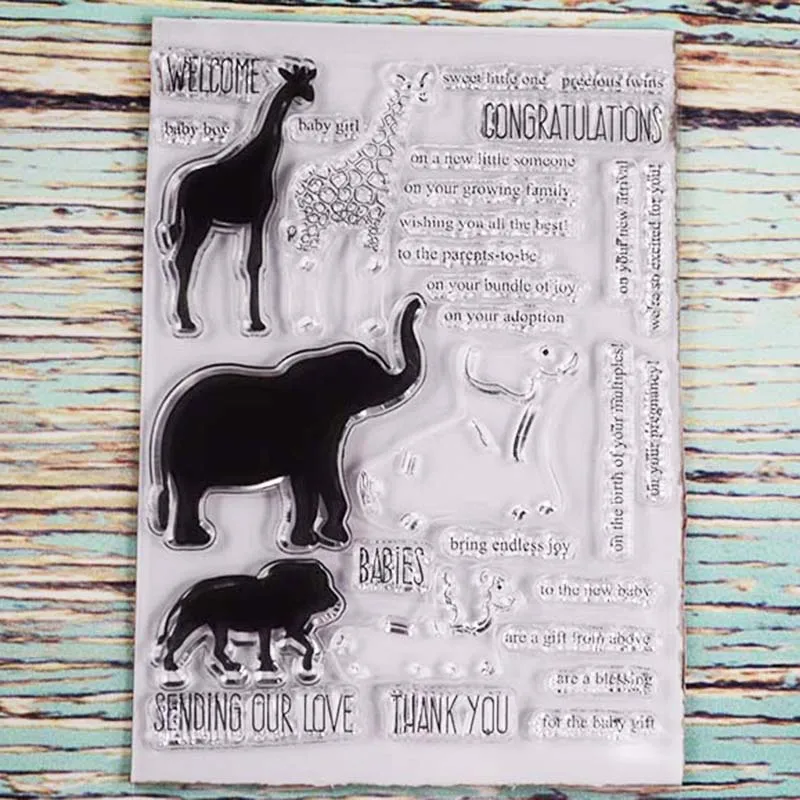 WELCOME
sweet little one
precious twins
baby boy
baby girl
CONGRATULATIONS
on a new little someone
on your growing family
wishing you all the best!
to the parents-to-be
on your bundle of joy
on your adoption
on your new arrival
we're so excited for you!
on the birth of your multiples!
on your pregnancy!
bring endless joy
BABIES
to the new baby
are a gift from above
are a blessing
SENDING OUR LOVE
THANK YOU
for the baby gift